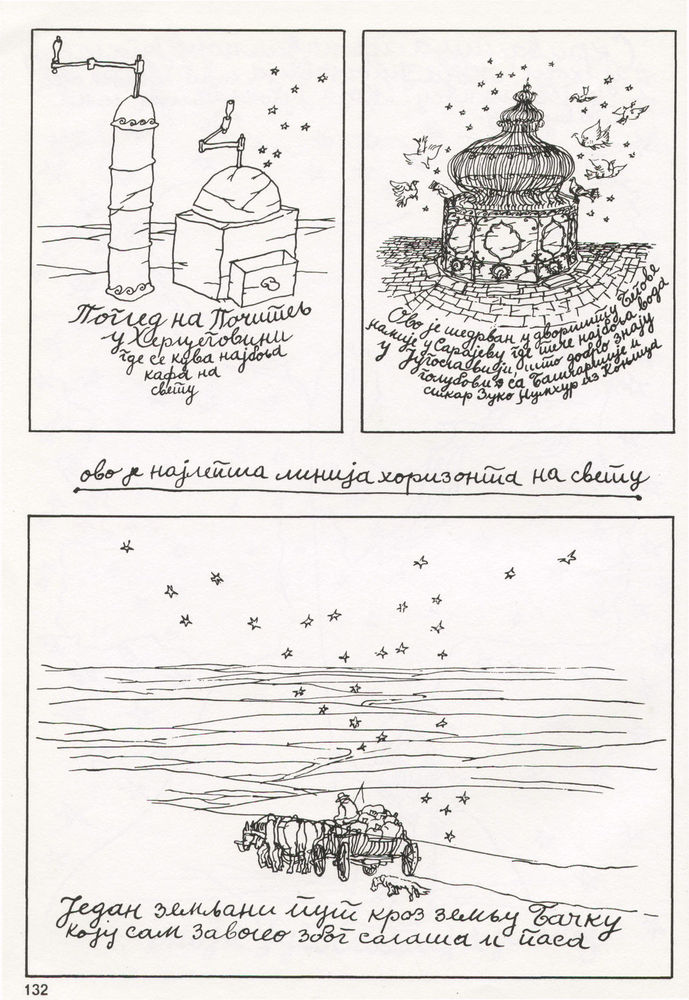 Поглед на Почитељ
у Херцеговини
где се кува најбоља
кафа на
свету
Ово је шедрван у дворишту Бегове
џамије у Сарајеву где тече најбоља вода
у Југославији, што добро знају
голубови са Башчаршије и
сликар Зуко Џумхур из Коњица
ово је најлепша линија хоризонта на свету
Један земљани пут кроз земљу Бачку
коју сам заволео због салаша и паса
132